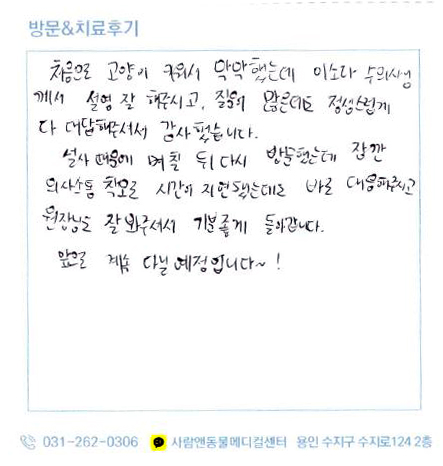 방문&치료후기
처음으로 고양이 키워서 막막했는데 이소라 수의사님
께서 설명 잘 해주시고, 질문이 많은데도 정성스럽게
다 대답해주셔서 감사했습니다.
설사 때문에 며칠 뒤 다시 방문했는데 잠깐
의사소통 착오로 시간이 지연됐는데도 바로 대응해주시고
원장님도 잘 봐주셔서 기분좋게 돌아갑니다.
앞으로 계속 다닐 예정입니다~!
031-262-0306 사람앤동물메디컬센터 용인 수지구 수지로 124 2층